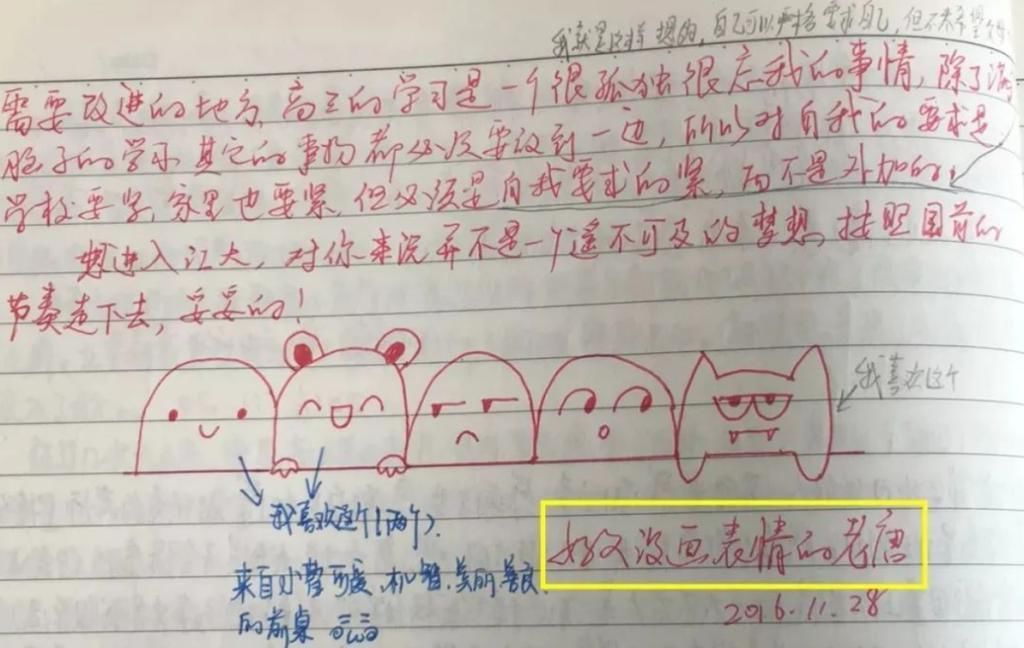 我就是这样想的，自己可以严格要求自己，但不希望
需要改进的地方，高三的学习是一个很孤独很忘我的事情，除了满
脑子的学习，其它的事物都必须要放到一边，所以对自我的要求是
学校要紧，家里也要紧，但必须是自我要求的紧，而不是外加的。
想进入江大，对你来说并不是一个遥不可及的梦想，按照目前的
节奏走下去，妥妥的！
我喜欢这个
我喜欢这个(两个).
好久没画表情的老唐
来自小曾可爱、机智、美丽、善良
的前桌
2016.11.28